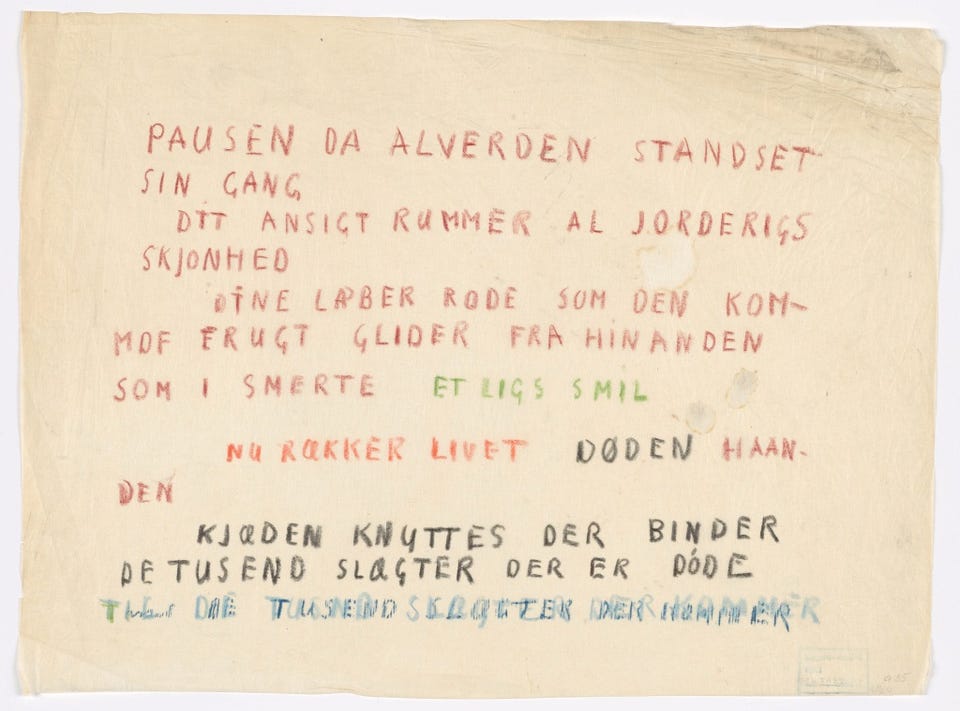 PAUSEN DA ALVERDEN STANDSET
SIN GANG
DIT ANSIGT RUMMER AL JORDERIGS
SKJONHED
DINE LÆBER RØDE SOM DEN KOM-
MDE FRUGT GLIDER FRA HINANDEN
SOM I SMERTE ET LIGS SMIL
NU RÆKKER LIVET DØDEN HAAN-
DEN
KJÆDEN KNYTTES DER BINDER
DE TUSEND SLÆGTER DER ER DØDE
DE TUSEND SLÆGTER DER KOMMER